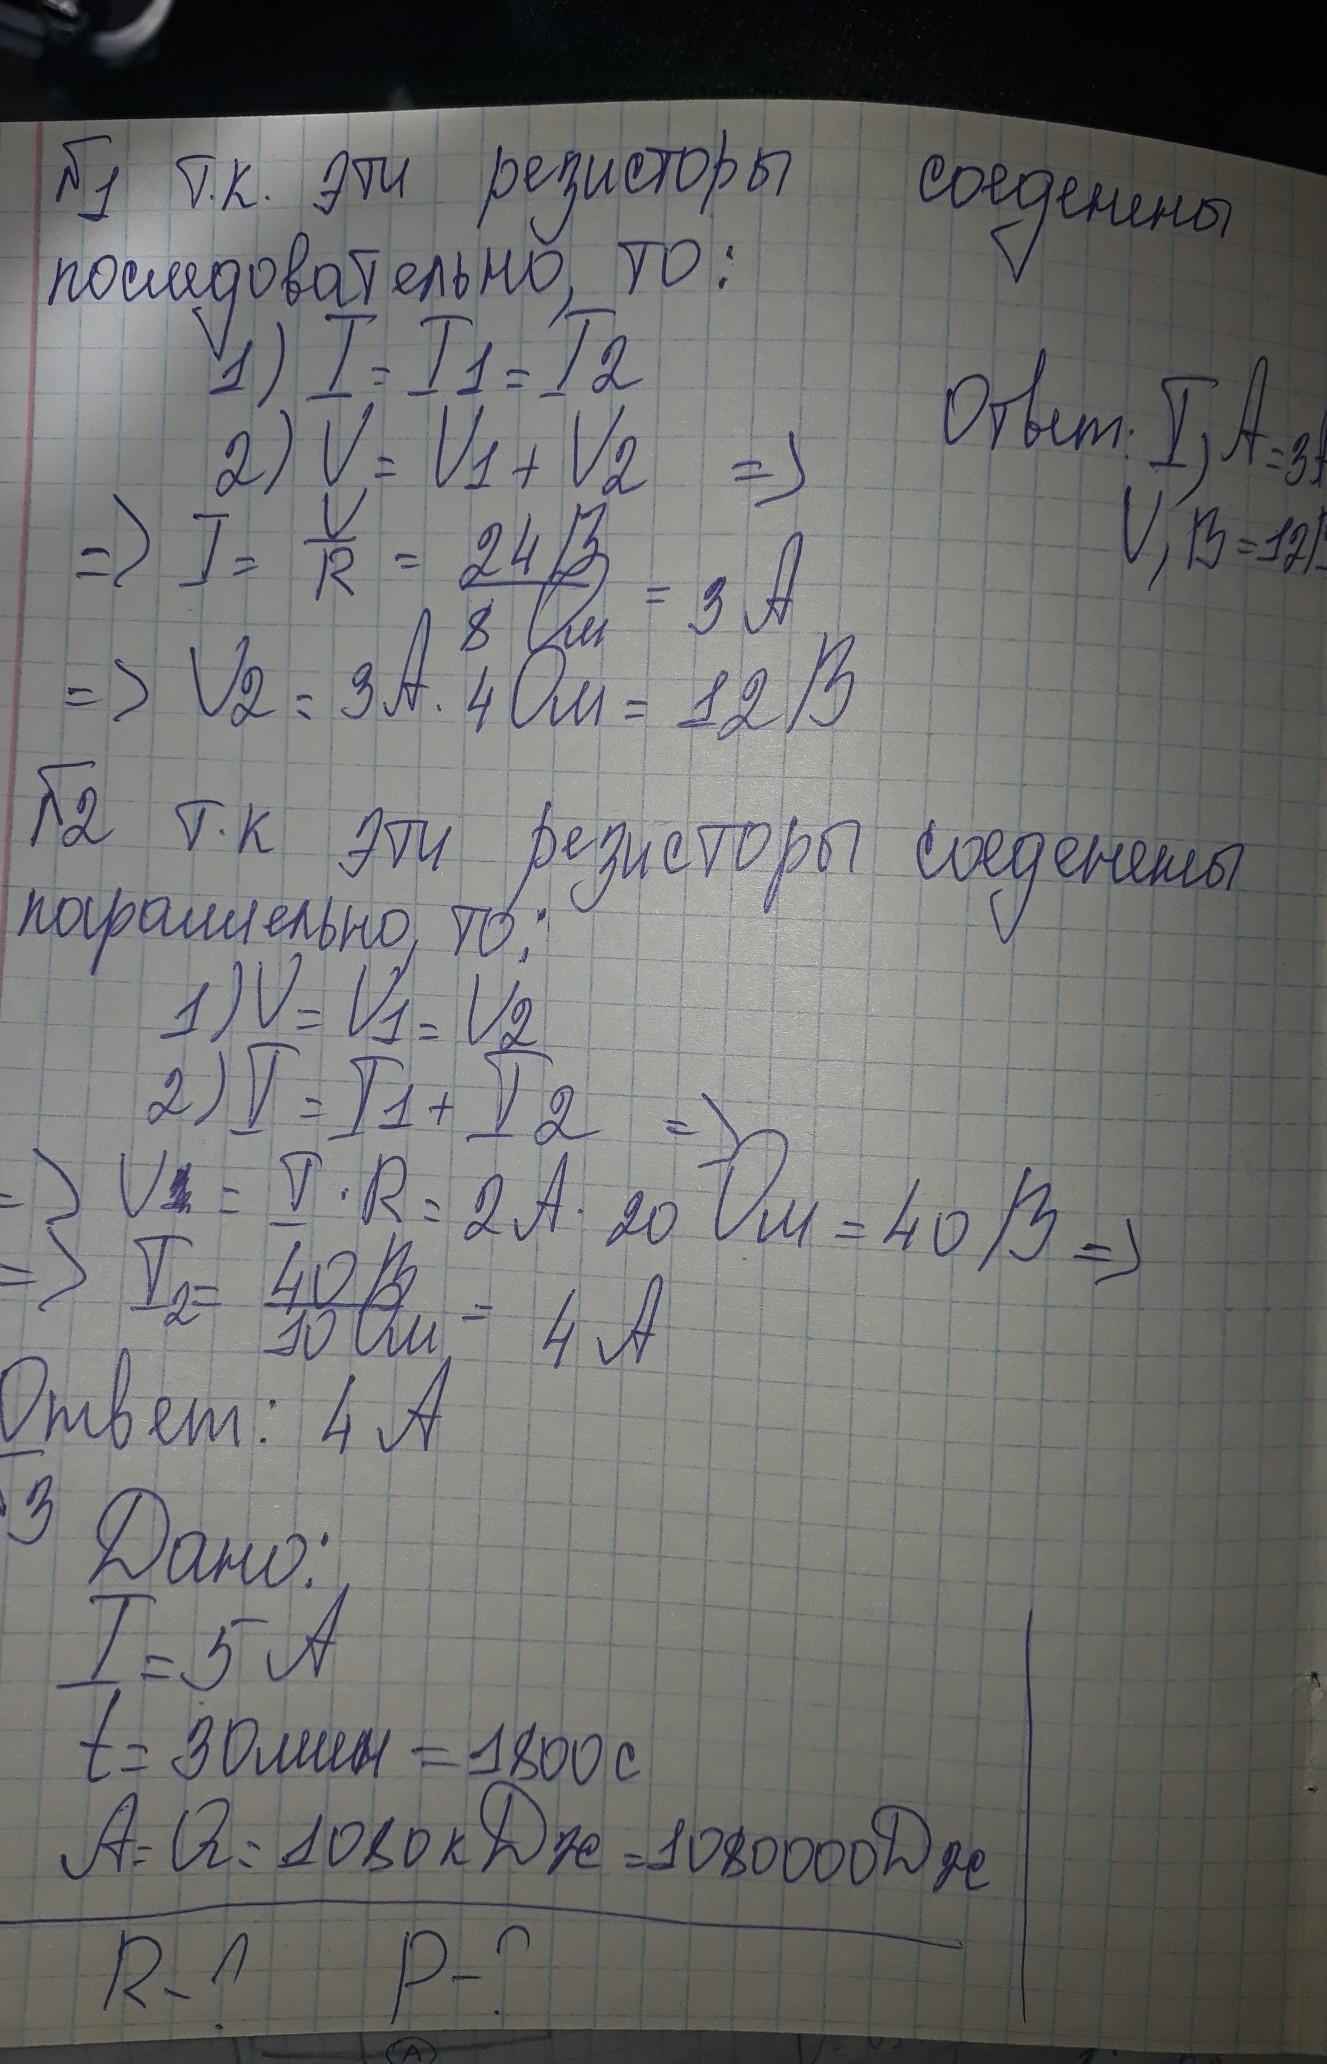 №1 т.к. эти резисторы соеденены
последовательно, то:
1) I = I1 = I2
2) U = U1 + U2 =>
Ответ: I, A = 3А
U, В = 12В
=> I = U/R = 24 В/8 Ом = 3 А
=> U2 = 3А · 4 Ом = 12 В
№2 т.к эти резисторы соеденены
параллельно, то:
1) U = U1 = U2
2) I = I1 + I2 =>
=> U1 = I · R = 2 А · 20 Ом = 40 В =>
=> I2 = 40 В/10 Ом = 4 А
Ответ: 4 А
№3
Дано:
I = 5 А
t = 30 мин = 1800 с
A = Q = 1080 кДж = 1080000 Дж
R - ? P - ?
A